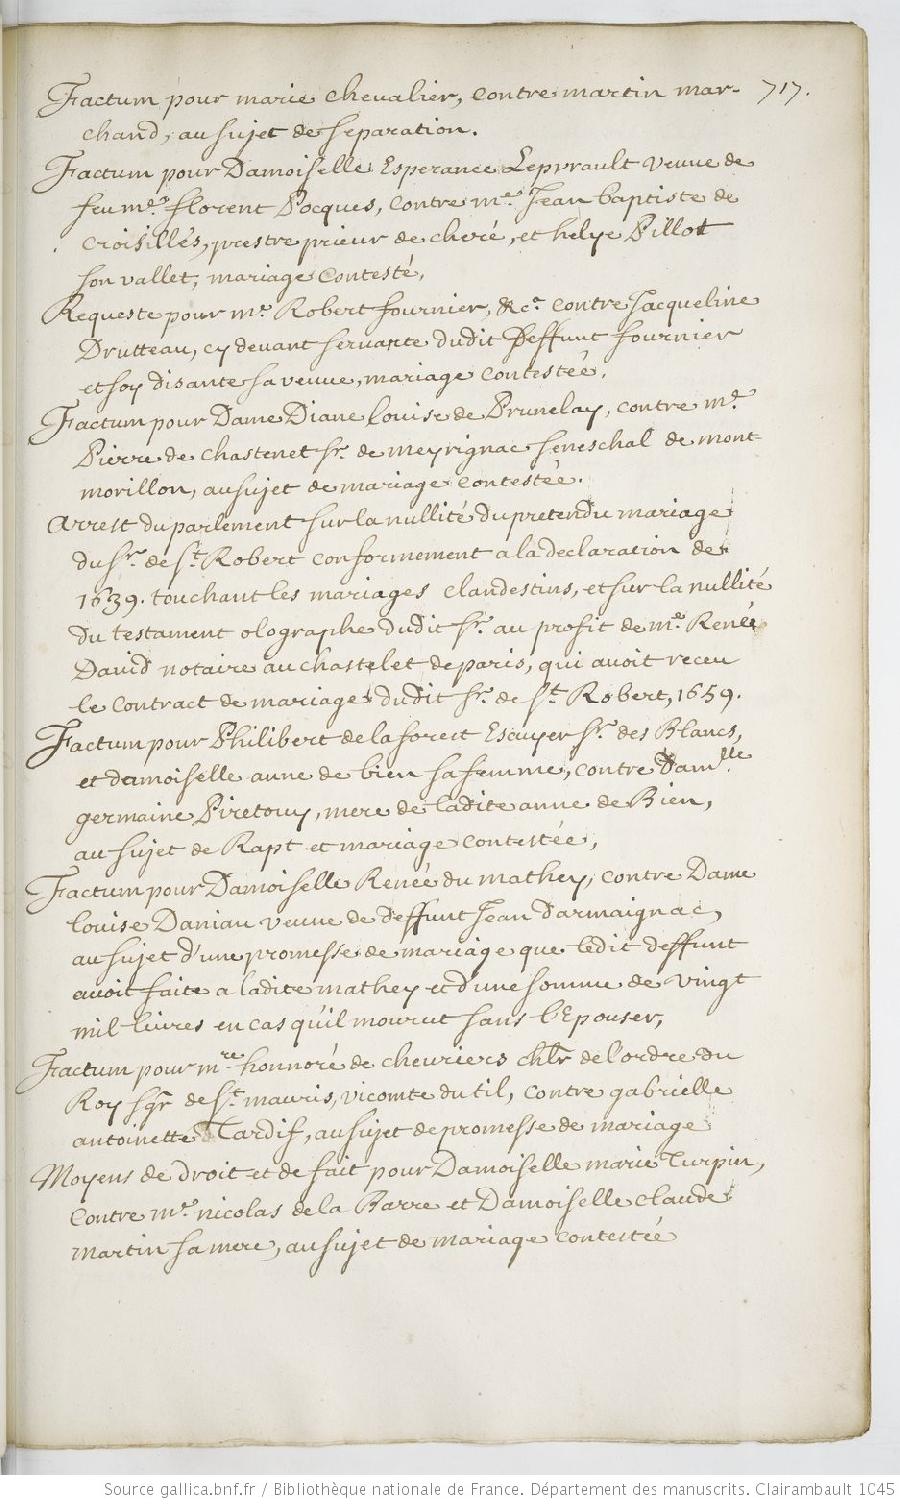 Factum pour marie chevalier, contre martin mar- 717.
chand, au sujet de separation.
Factum pour Damoiselle Esperance Lepvrault veuve de
feu me. florent Pocques, contre me. Jean baptiste de
croisilles, prestre prieur de cheré, et helye Pillot
son vallet, mariage contesté,
Requeste pour me. Robert fournier, &ca. contre Jacqueline
Drutteau, cy devant servante dudit deffunt fournier
et soy disante sa veuve, mariage contestée.
Factum pour Dame Diane louise de Prunelay, contre me.
Pierre de chastenet sr. de meyrignac seneschal de mont-
morillon, au sujet de mariage contestée.
Arrest du parlement sur la nullité du pretendu mariage
du sr. de st. Robert conformement a la declaration de
1639. touchant les mariages clandestins, et sur la nullité
du testament olographe dudit sr. au profit de me. Renée
David notaire au chastelet de paris, qui avoit receu
le contract de mariage dudit sr. de st. Robert, 1659.
Factum pour Philibert de la forest Escuyer sr. des Blancs,
et damoiselle anne de bien sa femme, contre Damlle.
germaine Piretouy, mere de ladite anne de Bien,
au sujet de Rapt et mariage contestée,
Factum pour Damoiselle Renée du mathey, contre Dame
louise Daniau veuve de deffunt Jean Darmaignac,
au sujet d'une promesse de mariage que ledit deffunt
avoit faite a ladite mathey et d'une somme de vingt
mil livres en cas qu'il mourut sans l'Epouser,
Factum pour mre. honnoré de chevriers chlr de l'ordre du
Roy sgr de st. mauris, vicomte du til, contre gabrielle
antoinette Tardif, au sujet de promesse de mariage
Moyens de droit et de fait pour Damoiselle marie Turpin,
contre me. nicolas de la Barre et Damoiselle claude
martin sa mere, au sujet de mariage contestée
Source gallica.bnf.fr / Bibliothèque nationale de France. Département des manuscrits. Clairambault 1045